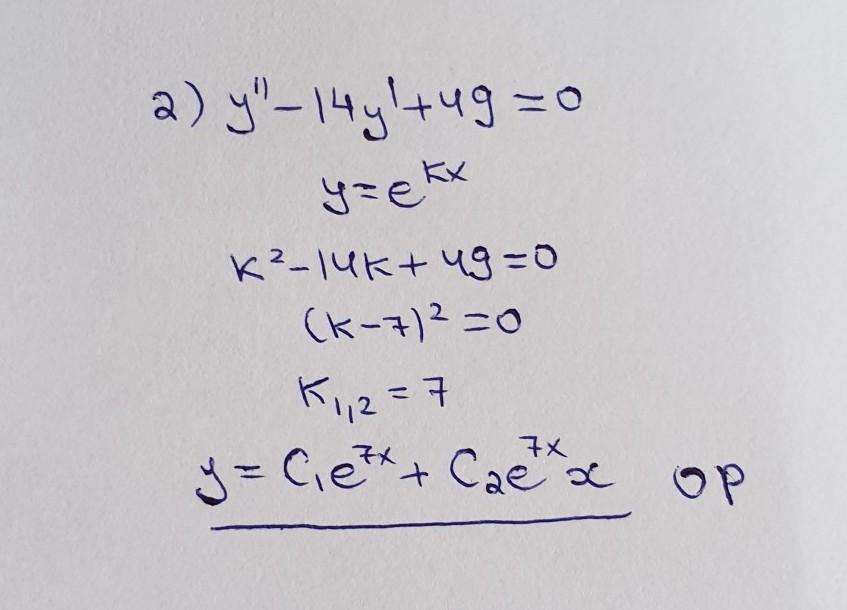 2) y''-14y'+49=0
y=e^{kx}
k²-14k+49=0
(k-7)²=0
k₁,₂=7
y=C₁e^{7x}+C₂e^{7x}x ор